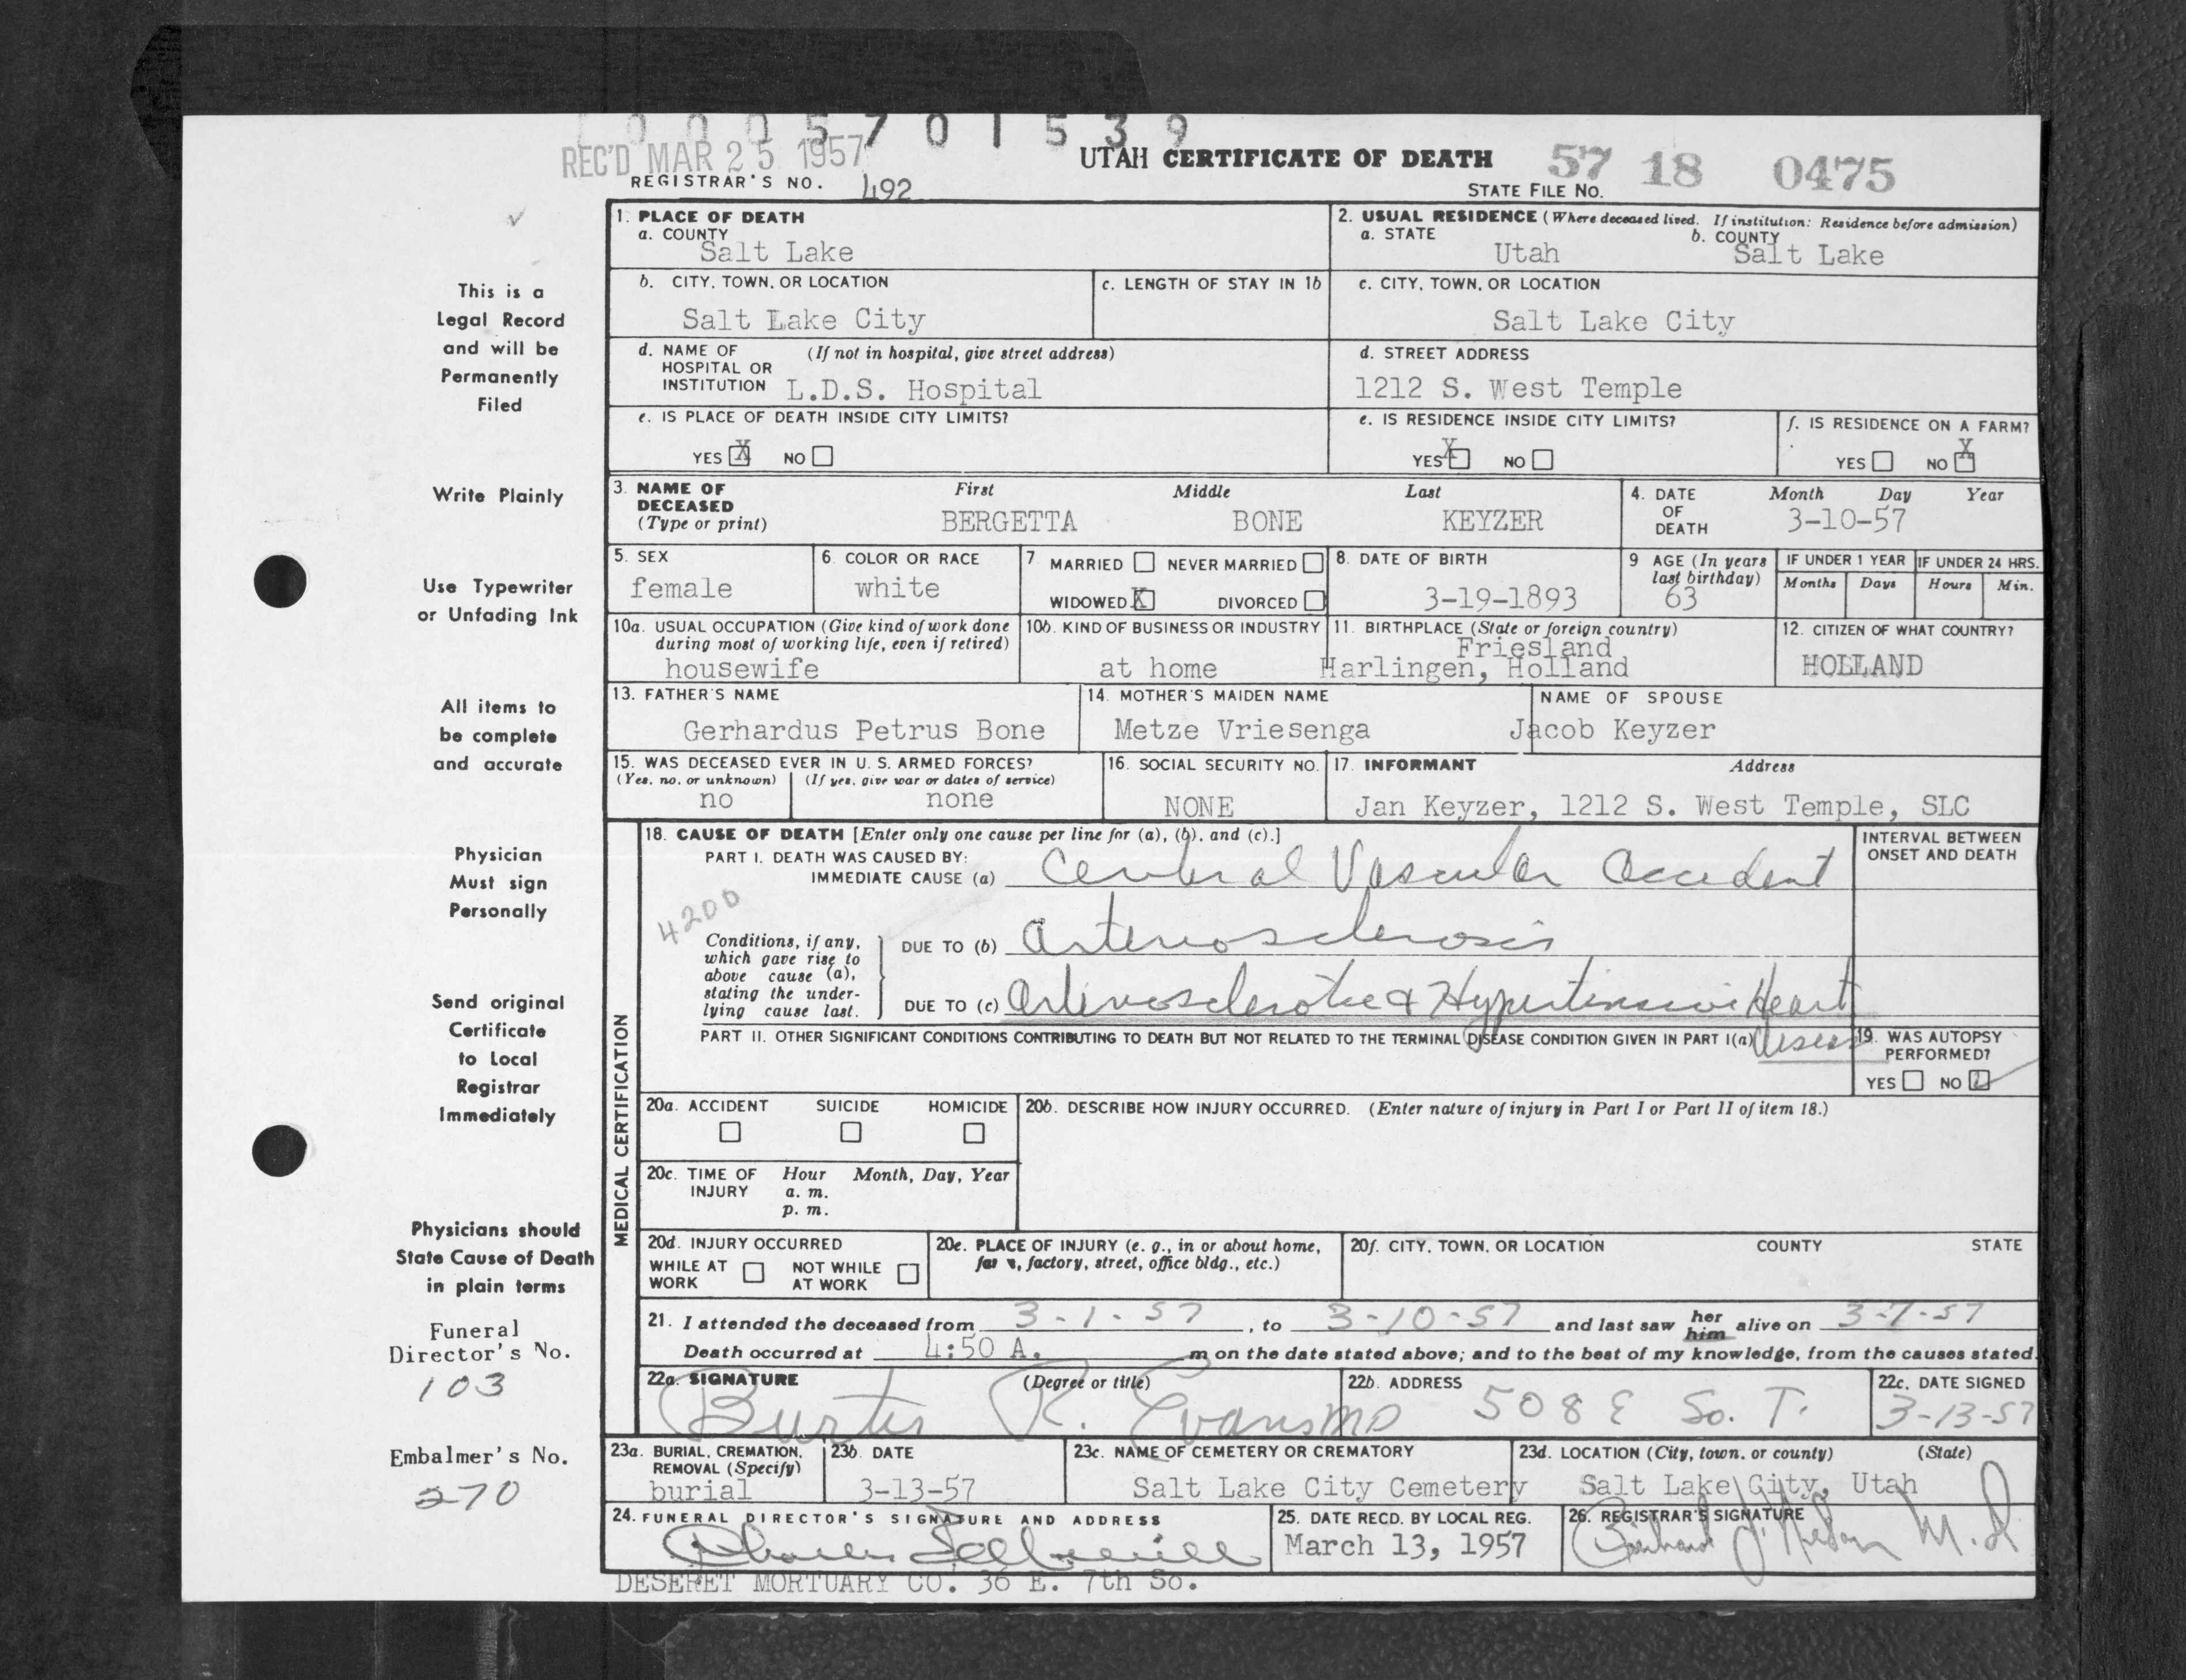 1 0 0 0 5 7 0 1 5 3 9
REC'D MAR 25 1957
UTAH CERTIFICATE OF DEATH
57 18 0475
REGISTRAR'S NO. 492
STATE FILE NO.
1. PLACE OF DEATH
a. COUNTY
Salt Lake
2. USUAL RESIDENCE (Where deceased lived. If institution: Residence before admission)
a. STATE
Utah
b. COUNTY
Salt Lake
b. CITY, TOWN, OR LOCATION
Salt Lake City
c. LENGTH OF STAY IN 1b
c. CITY, TOWN, OR LOCATION
Salt Lake City
d. NAME OF (If not in hospital, give street address)
HOSPITAL OR
INSTITUTION L.D.S. Hospital
d. STREET ADDRESS
1212 S. West Temple
e. IS PLACE OF DEATH INSIDE CITY LIMITS?
YES X NO
e. IS RESIDENCE INSIDE CITY LIMITS?
YES X NO
f. IS RESIDENCE ON A FARM?
YES NO X
3. NAME OF
DECEASED
(Type or print)
First Middle Last
BERGETTA BONE KEYZER
4. DATE
OF
DEATH
Month Day Year
3-10-57
5. SEX
female
6. COLOR OR RACE
white
7 MARRIED NEVER MARRIED
WIDOWED X DIVORCED
8. DATE OF BIRTH
3-19-1893
9 AGE (In years
last birthday)
63
IF UNDER 1 YEAR
Months Days
IF UNDER 24 HRS.
Hours Min.
10a. USUAL OCCUPATION (Give kind of work done
during most of working life, even if retired)
housewife
10b. KIND OF BUSINESS OR INDUSTRY
at home
11. BIRTHPLACE (State or foreign country)
Friesland
Harlingen, Holland
12. CITIZEN OF WHAT COUNTRY?
HOLLAND
13. FATHER'S NAME
Gerhardus Petrus Bone
14. MOTHER'S MAIDEN NAME
Metze Vriesenga
NAME OF SPOUSE
Jacob Keyzer
15. WAS DECEASED EVER IN U. S. ARMED FORCES?
(Yes, no, or unknown) (If yes, give war or dates of service)
no none
16. SOCIAL SECURITY NO.
NONE
17. INFORMANT Address
Jan Keyzer, 1212 S. West Temple, SLC
MEDICAL CERTIFICATION
18. CAUSE OF DEATH [Enter only one cause per line for (a), (b), and (c).]
PART I. DEATH WAS CAUSED BY:
IMMEDIATE CAUSE (a) Cerebral Vascular Accident
INTERVAL BETWEEN
ONSET AND DEATH
4200
Conditions, if any,
which gave rise to
above cause (a),
stating the under-
lying cause last.
DUE TO (b) Arteriosclerosis
DUE TO (c) Arteriosclerotic & Hypertensive Heart
PART II. OTHER SIGNIFICANT CONDITIONS CONTRIBUTING TO DEATH BUT NOT RELATED TO THE TERMINAL DISEASE CONDITION GIVEN IN PART I(a)
19. WAS AUTOPSY
PERFORMED?
YES NO
20a. ACCIDENT SUICIDE HOMICIDE
20b. DESCRIBE HOW INJURY OCCURRED. (Enter nature of injury in Part I or Part II of item 18.)
20c. TIME OF Hour Month, Day, Year
INJURY a. m.
p. m.
20d. INJURY OCCURRED
WHILE AT
WORK
NOT WHILE
AT WORK
20e. PLACE OF INJURY (e. g., in or about home,
factory, street, office bldg., etc.)
20f. CITY, TOWN, OR LOCATION COUNTY STATE
21. I attended the deceased from 3-1-57, to 3-10-57 and last saw her him alive on 3-7-57
Death occurred at 4:50 A. m on the date stated above; and to the best of my knowledge, from the causes stated.
22a. SIGNATURE (Degree or title)
Burtis R. Evans MD
22b. ADDRESS
508 E So. T.
22c. DATE SIGNED
3-13-57
23a. BURIAL, CREMATION,
REMOVAL (Specify)
burial
23b. DATE
3-13-57
23c. NAME OF CEMETERY OR CREMATORY
Salt Lake City Cemetery
23d. LOCATION (City, town, or county) (State)
Salt Lake City, Utah
24. FUNERAL DIRECTOR'S SIGNATURE AND ADDRESS
DESERET MORTUARY CO. 36 E. 7th So.
25. DATE RECD. BY LOCAL REG.
March 13, 1957
26. REGISTRAR'S SIGNATURE
M.D.
This is a
Legal Record
and will be
Permanently
Filed
Write Plainly
Use Typewriter
or Unfading Ink
All items to
be complete
and accurate
Physician
Must sign
Personally
Send original
Certificate
to Local
Registrar
Immediately
Physicians should
State Cause of Death
in plain terms
Funeral
Director's No.
103
Embalmer's No.
270